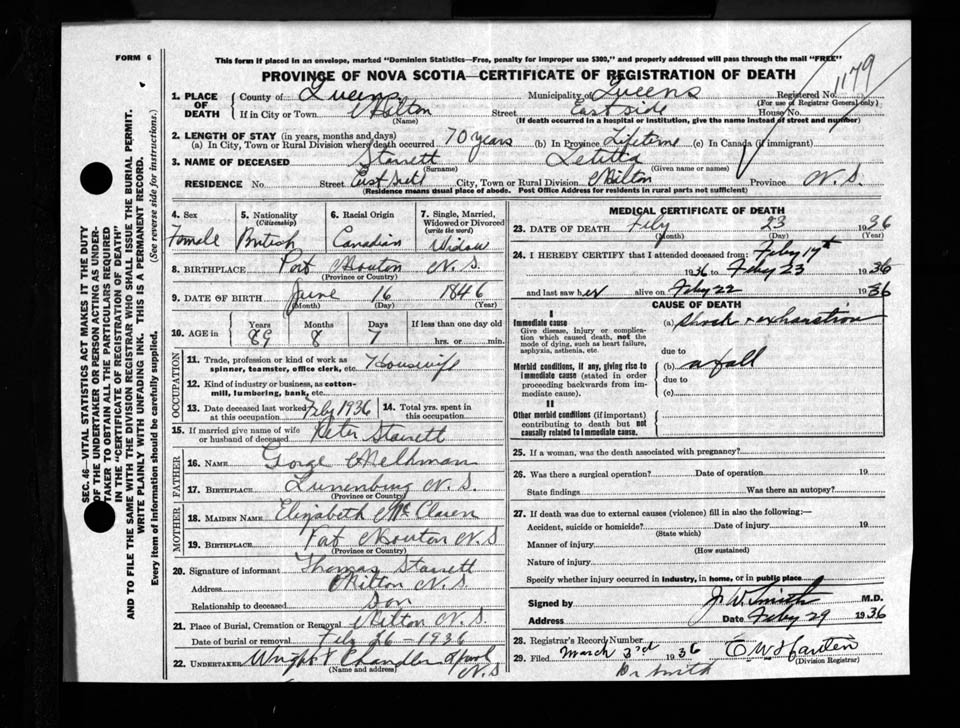 FORM 6
This form if placed in an envelope, marked "Dominion Statistics—Free, penalty for improper use $300," and properly addressed will pass through the mail "FREE"
PROVINCE OF NOVA SCOTIA—CERTIFICATE OF REGISTRATION OF DEATH
1179
1. PLACE OF DEATH County of Queens Municipality of Queens Registered No.
(For use of Registrar General only)
If in City or Town Milton Street East side House No.
(Name) (If death occurred in a hospital or institution, give the name instead of street and number)
2. LENGTH OF STAY (in years, months and days)
(a) In City, Town or Rural Division where death occurred 70 years (b) In Province Lifetime (c) In Canada (if immigrant)
3. NAME OF DECEASED Starrett Letitta
(Surname) (Given name or names)
RESIDENCE No. Street East Side City, Town or Rural Division Milton Province N.S.
(Residence means usual place of abode. Post Office Address for residents in rural parts not sufficient)
SEC. 46—VITAL STATISTICS ACT MAKES IT THE DUTY
OF THE UNDERTAKER OR PERSON ACTING AS UNDER-
TAKER TO OBTAIN ALL THE PARTICULARS REQUIRED
IN THE "CERTIFICATE OF REGISTRATION OF DEATH"
AND TO FILE THE SAME WITH THE DIVISION REGISTRAR WHO SHALL ISSUE THE BURIAL PERMIT.
WRITE PLAINLY WITH UNFADING INK. THIS IS A PERMANENT RECORD.
Every item of information should be carefully supplied. (See reverse side for instructions.)
4. Sex
Female
5. Nationality
(Citizenship)
British
6. Racial Origin
Canadian
7. Single, Married,
Widowed or Divorced
(write the word)
Widow
8. BIRTHPLACE Port Mouton N.S.
(Province or Country)
9. DATE OF BIRTH June 16 1846
(Month) (Day) (Year)
10. AGE in Years Months Days If less than one day old
89 8 7 hrs. or min.
OCCUPATION
11. Trade, profession or kind of work as
spinner, teamster, office clerk, etc. Housewife
12. Kind of industry or business, as cotton-
mill, lumbering, bank, etc.
13. Date deceased last worked
at this occupation Feby 1936
14. Total yrs. spent in
this occupation
15. If married give name of wife
or husband of deceased Peter Starrett
FATHER
16. NAME Gorge
17. BIRTHPLACE Lunenburg N.S.
(Province or Country)
MOTHER
18. MAIDEN NAME Elizabeth McClaren
19. BIRTHPLACE Port Mouton N.S
(Province or Country)
20. Signature of informant Thomas Starrett
Address Milton N.S
Relationship to deceased Son
21. Place of Burial, Cremation or Removal Milton N.S.
Date of burial or removal Feby 26-1936
22. UNDERTAKER Wright & Chandler Lpool N.S
(Name and address)
MEDICAL CERTIFICATE OF DEATH
23. DATE OF DEATH Feby 23 1936
(Month) (Day) (Year)
24. I HEREBY CERTIFY that I attended deceased from: Feby 17th
1936 to Feby 23 1936
and last saw her alive on Feby 22 1936
CAUSE OF DEATH
I
Immediate cause
Give disease, injury or complica-
tion which caused death, not the
mode of dying, such as heart failure,
asphyxia, asthenia, etc.
(a) Shock & exhaustion
due to
Morbid conditions, if any, giving rise to
immediate cause (stated in order
proceeding backwards from im-
mediate cause).
(b) a fall
due to
(c)
II
Other morbid conditions (if important)
contributing to death but not
causally related to immediate cause.
25. If a woman, was the death associated with pregnancy?
26. Was there a surgical operation? Date of operation 19
State findings Was there an autopsy?
27. If death was due to external causes (violence) fill in also the following:—
Accident, suicide or homicide? Date of injury 19
(State which)
Manner of injury
(How sustained)
Nature of injury
Specify whether injury occurred in industry, in home, or in public place
Signed by J. W. Smith M.D.
Address Date Feby 29 1936
28. Registrar's Record Number
29. Filed March 3rd 1936
(Division Registrar)
Dr Smith